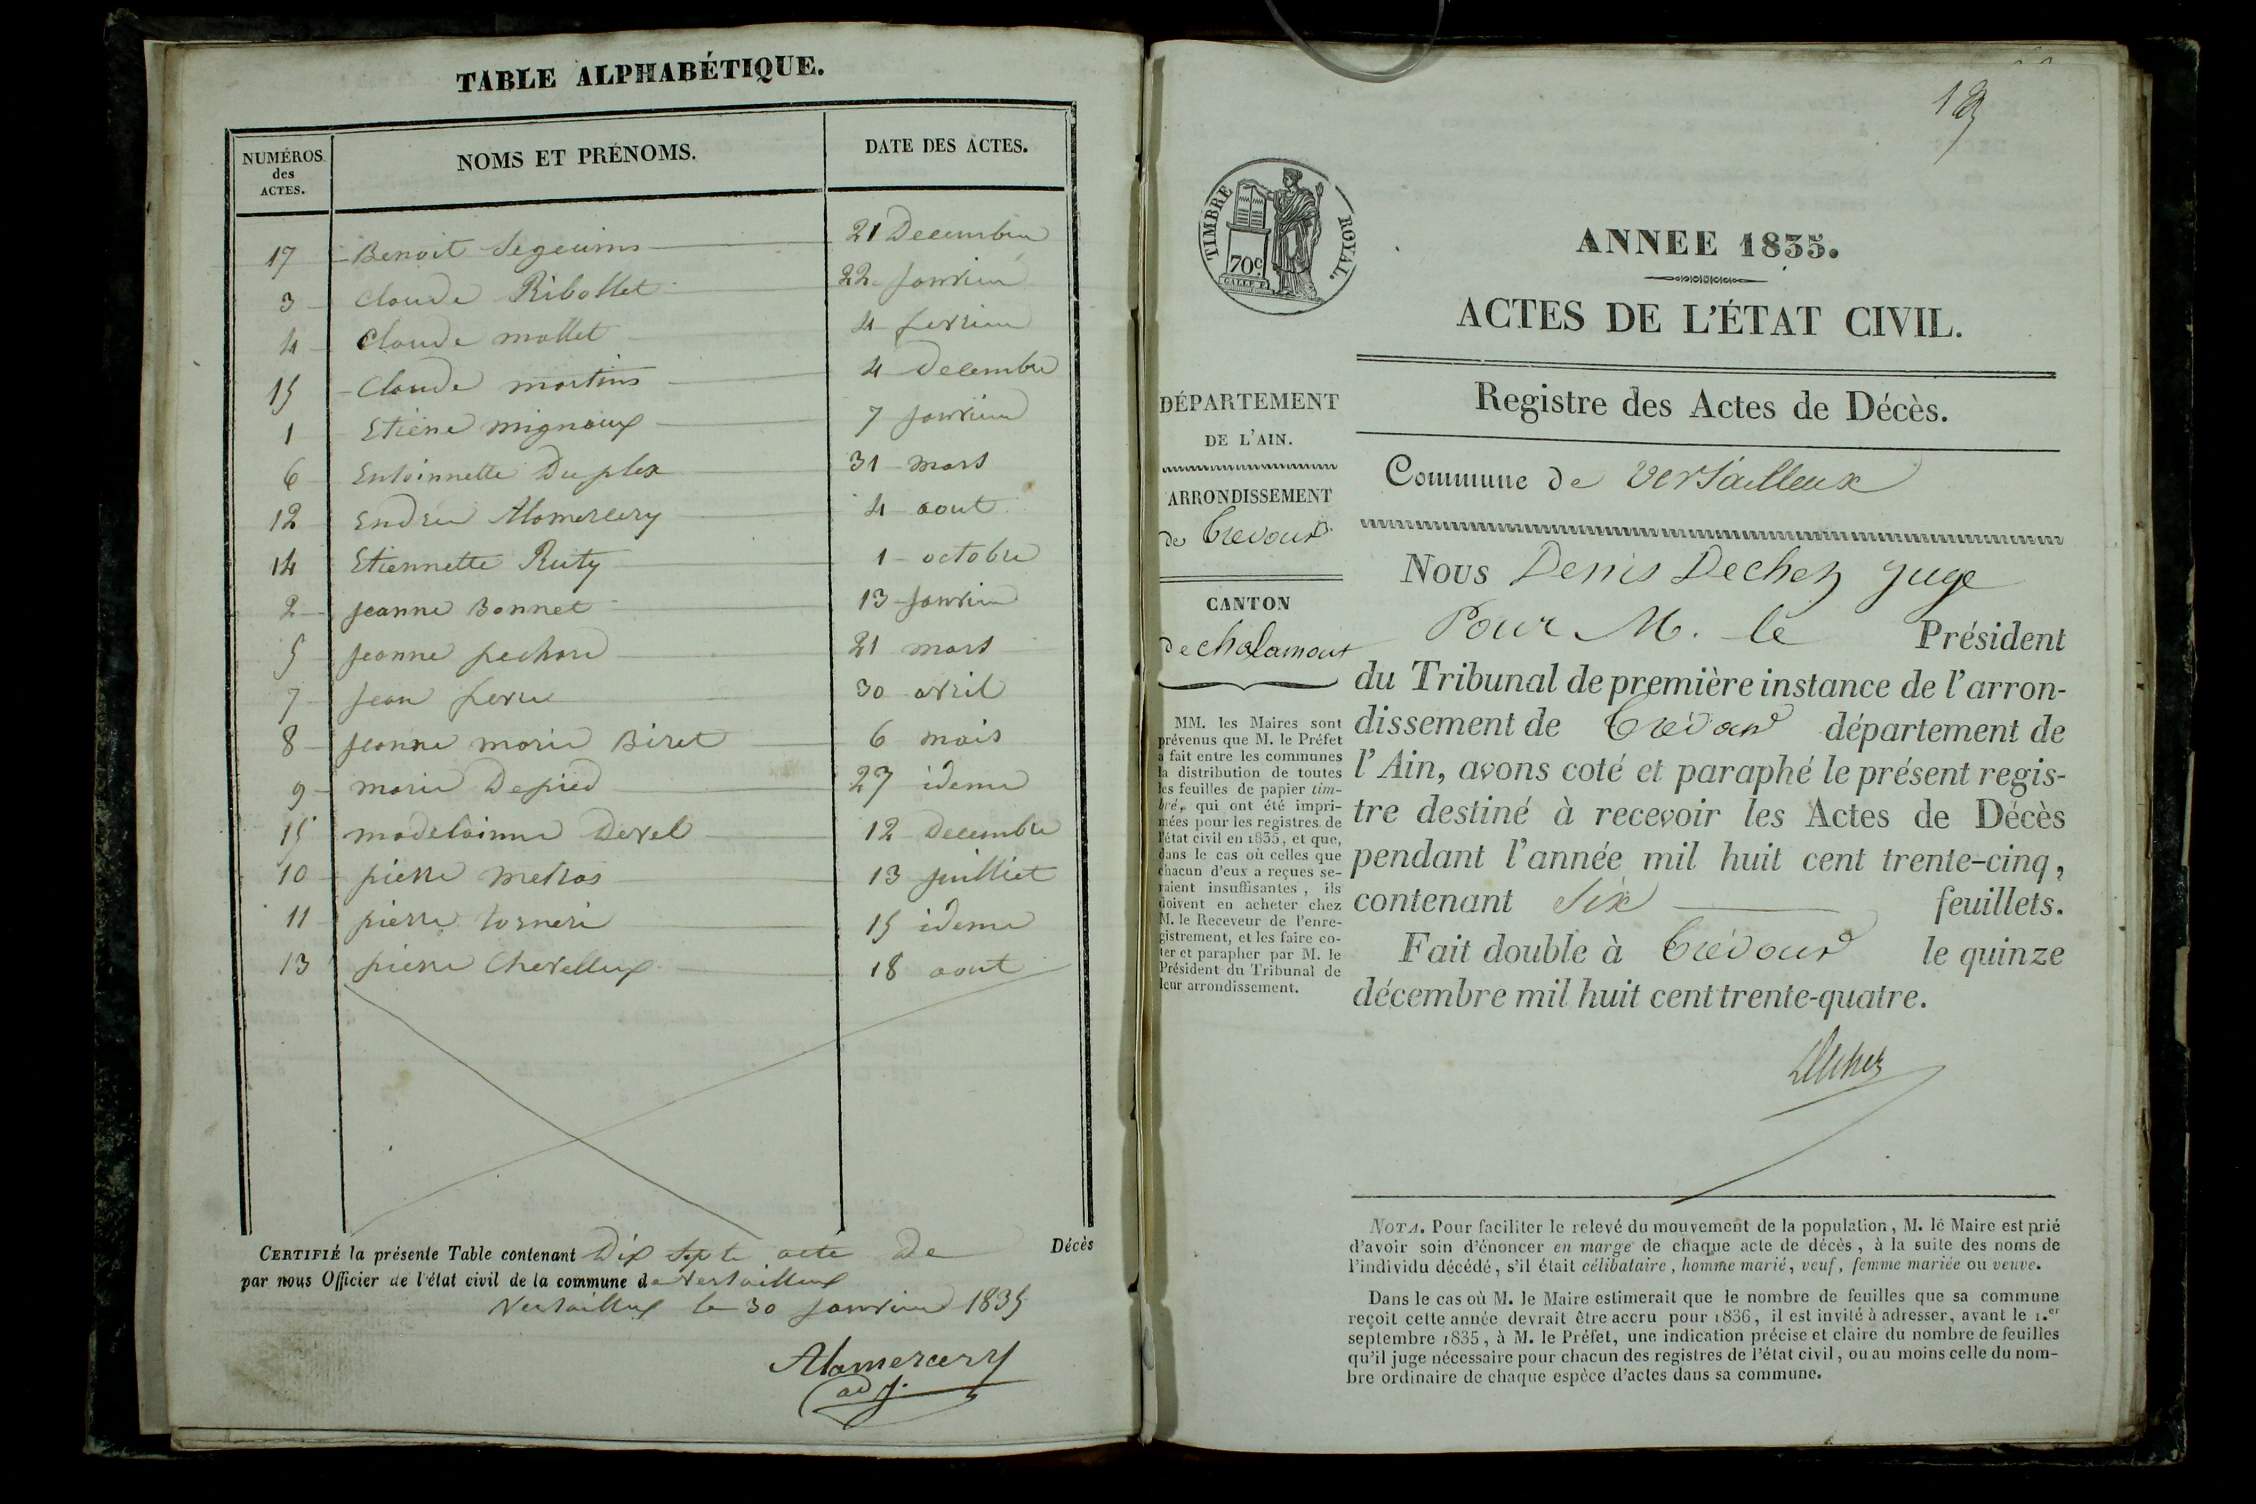 TABLE ALPHABÉTIQUE.
NUMÉROS des ACTES. NOMS ET PRÉNOMS. DATE DES ACTES.
17 Benoit Seguins 21 Decembre
3 Claude Ribollet 22 janvier
4 Claude mollet 4 fevrier
15 Claude martins 4 Decembre
1 Etiene mignoux 7 janvier
6 Entoinnette Duplex 31 mars
12 Endreu Alamercery 4 aout
14 Etiennette Ruty 1 octobre
2 jeanne Bonnet 13 janvier
5 jeanne pechard 21 mars
7 jean 30 avril
8 jeanne marie Biret 6 mais
9 marie Depied 27 idem
15 madelainne Devel 12 Decembre
10 pierre metras 13 juilliet
11 pierre torneri 15 idem
13 pierre Chevellux 18 aout
CERTIFIÉ la présente Table contenant Dix septe acte De Décès
par nous Officier de l'état civil de la commune de Versailleux
Versailleux le 30 janvier 1835
Alamercery
adj.
189
TIMBRE ROYAL.
70c
ANNEE 1835.
ACTES DE L'ÉTAT CIVIL.
Registre des Actes de Décès.
DÉPARTEMENT
DE L'AIN.
ARRONDISSEMENT
de Trevoux
CANTON
de chalamont
MM. les Maires sont
prévenus que M. le Préfet
a fait entre les communes
la distribution de toutes
les feuilles de papier tim-
bré, qui ont été impri-
mées pour les registres de
l'état civil en 1835, et que,
dans le cas où celles que
chacun d'eux a reçues se-
raient insuffisantes, ils
doivent en acheter chez
M. le Receveur de l'enre-
gistrement, et les faire co-
ter et parapher par M. le
Président du Tribunal de
leur arrondissement.
Commune de Versailleux
Nous Denis Dechez juge
Pour M. le Président
du Tribunal de première instance de l'arron-
dissement de Trévoux département de
l'Ain, avons coté et paraphé le présent regis-
tre destiné à recevoir les Actes de Décès
pendant l'année mil huit cent trente-cinq,
contenant Six feuillets.
Fait double à Trévoux le quinze
décembre mil huit cent trente-quatre.
Dechez
NOTA. Pour faciliter le relevé du mouvement de la population, M. le Maire est prié
d'avoir soin d'énoncer en marge de chaque acte de décès, à la suite des noms de
l'individu décédé, s'il était célibataire, homme marié, veuf, femme mariée ou veuve.
Dans le cas où M. le Maire estimerait que le nombre de feuilles que sa commune
reçoit cette année devrait être accru pour 1836, il est invité à adresser, avant le 1.er
septembre 1835, à M. le Préfet, une indication précise et claire du nombre de feuilles
qu'il juge nécessaire pour chacun des registres de l'état civil, ou au moins celle du nom-
bre ordinaire de chaque espèce d'actes dans sa commune.